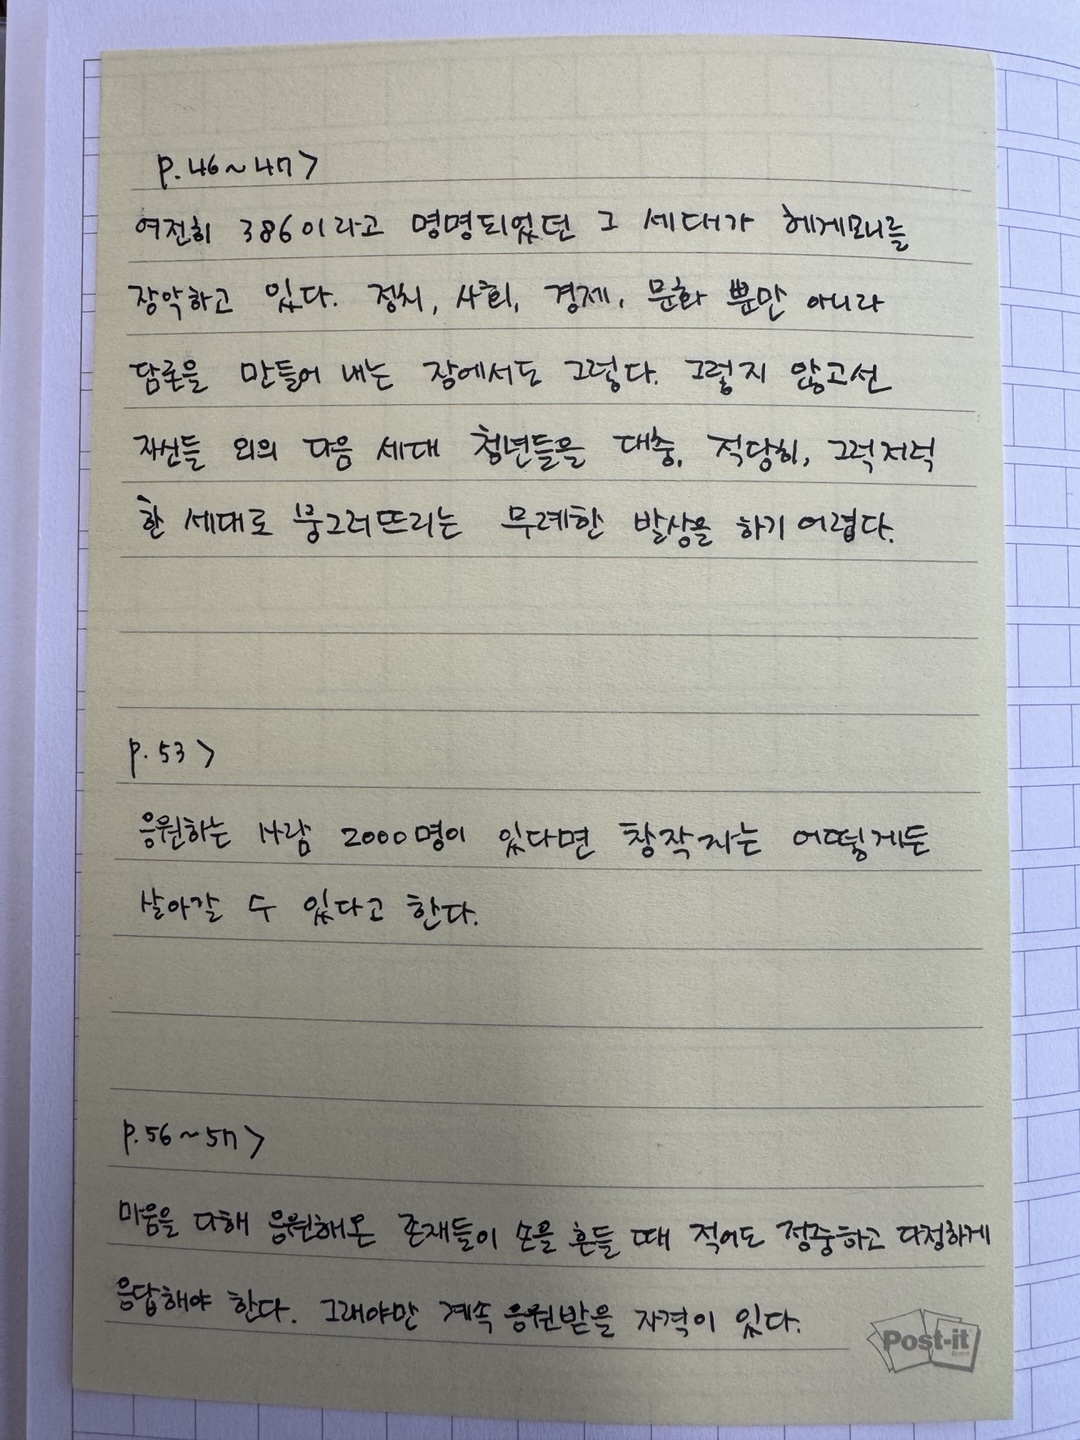 p.46~47>
여전히 386이라고 명명되었던 그 세대가 헤게모니를
장악하고 있다. 정치, 사회, 경제, 문화 뿐만 아니라
담론을 만들어 내는 장에서도 그렇다. 그렇지 않고선
자신들 외의 다음 세대 청년들을 대충, 적당히, 그럭저럭
한 세대로 뭉그러뜨리는 무례한 발상을 하기 어렵다.
p.53>
응원하는 사람 2000명이 있다면 창작자는 어떻게든
살아갈 수 있다고 한다.
p.56~57>
마음을 다해 응원해온 존재들이 손을 흔들 때 적어도 정중하고 다정하게
응답해야 한다. 그래야만 계속 응원받을 자격이 있다.
Post-it